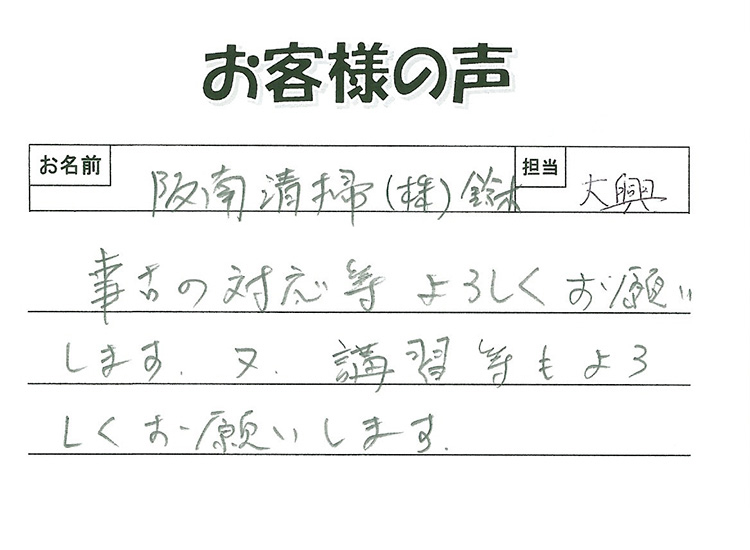 お客様の声
お名前 阪南清掃(株)鈴木 担当 大興
事古の対応等 よろしくお願い
します. 又. 講習等もよろ
しくお願いします.